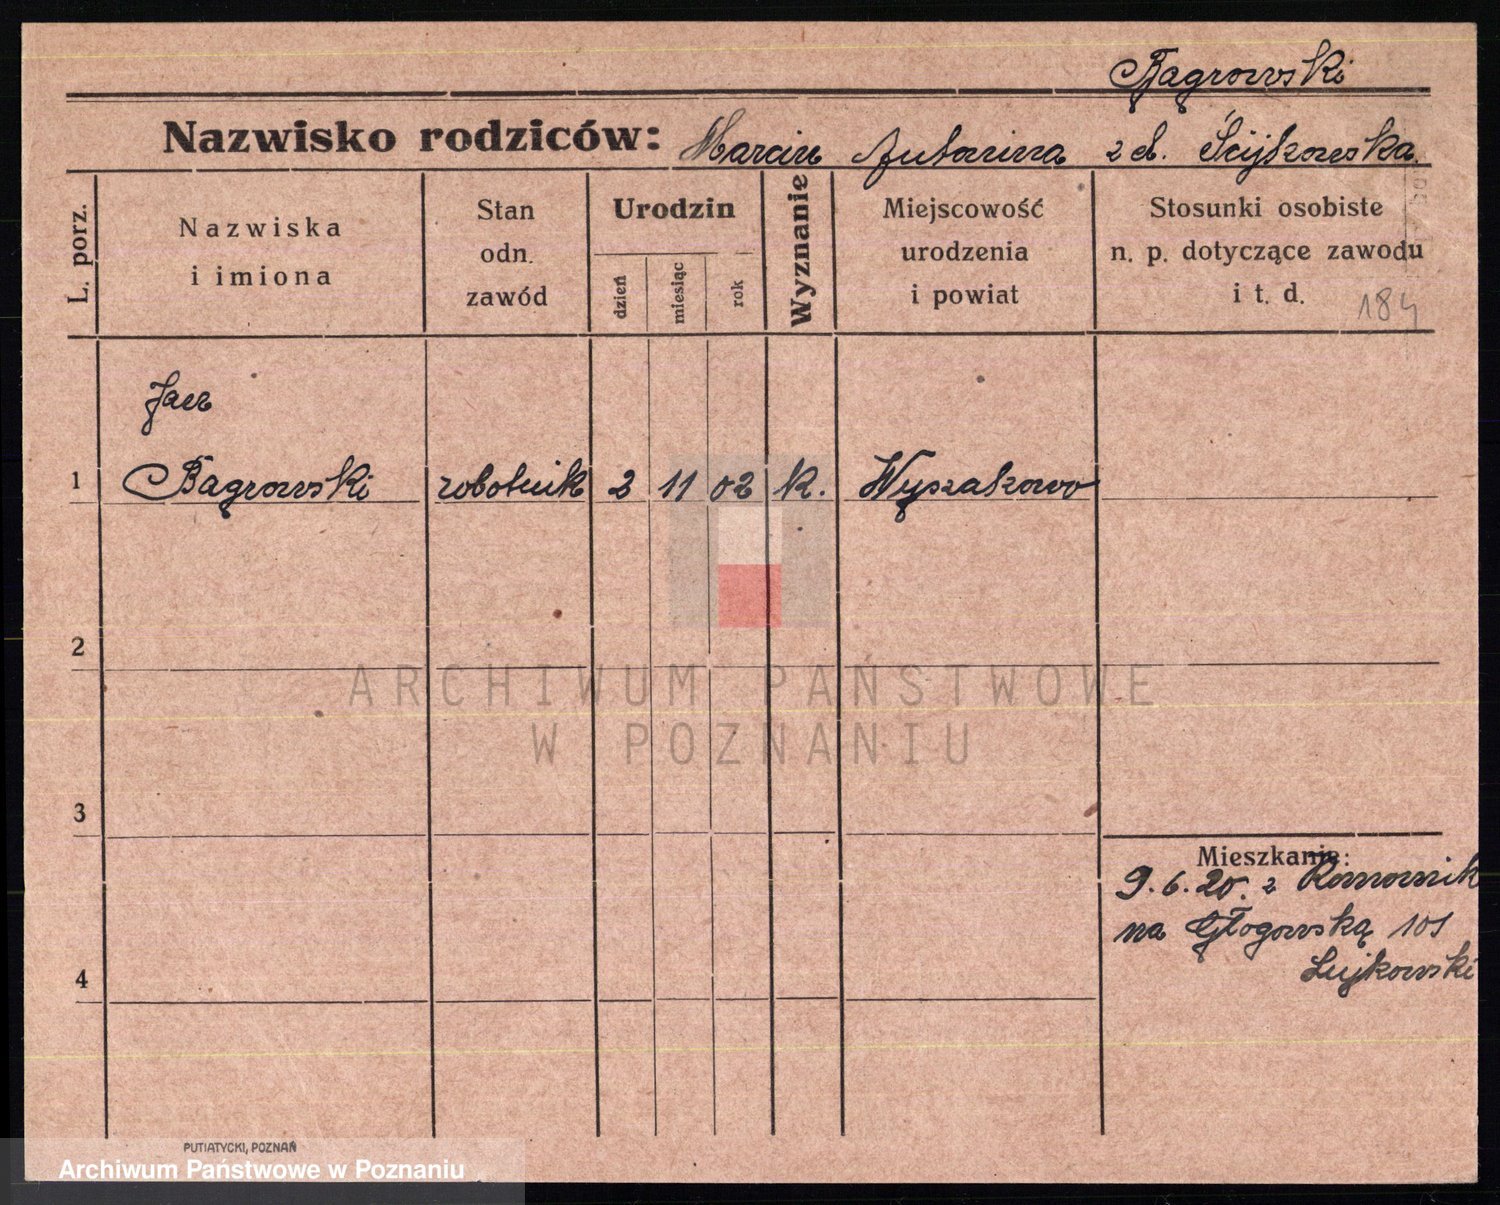 Bagrowski
Nazwisko rodziców: Marcin Antonina z d.
L. porz.
Nazwiska
i imiona
Stan
odn.
zawód
Urodzin
dzień
miesiąc
rok
Wyznanie
Miejscowość
urodzenia
i powiat
Stosunki osobiste
n. p. dotyczące zawodu
i t. d.
184
Jan
1 Bagrowski robotnik 2 11 02 k. Wyszakowo
2
ARCHIWUM PAŃSTWOWE
W POZNANIU
3
Mieszkanie:
9.6.20. z Komornik
na Głogowską 101
4
PUTIATYCKI, POZNAŃ
Archiwum Państwowe w Poznaniu